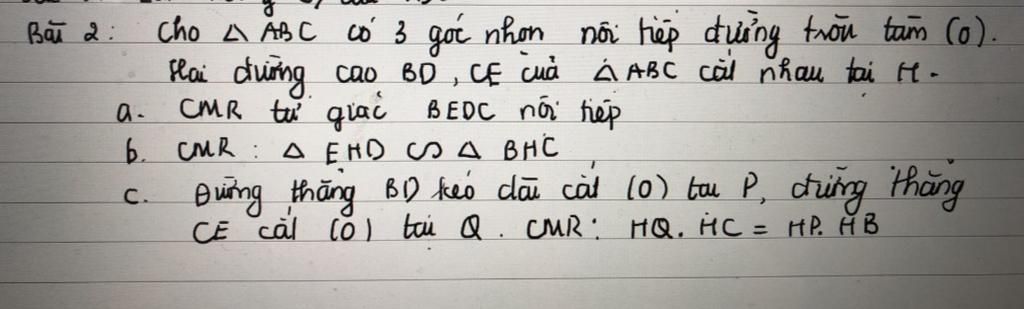 Bài 2: Cho △ ABC có 3 góc nhọn nội tiếp đường tròn tâm (O).
Hai đường cao BD, CE của △ ABC cắt nhau tại H.
a. CMR tứ giác BEDC nội tiếp
b. CMR: △ EHD ∽ △ BHC
c. Đường thẳng BD kéo dài cắt (O) tại P, đường thẳng
CE cắt (O) tại Q. CMR: HQ. HC = HP. HB